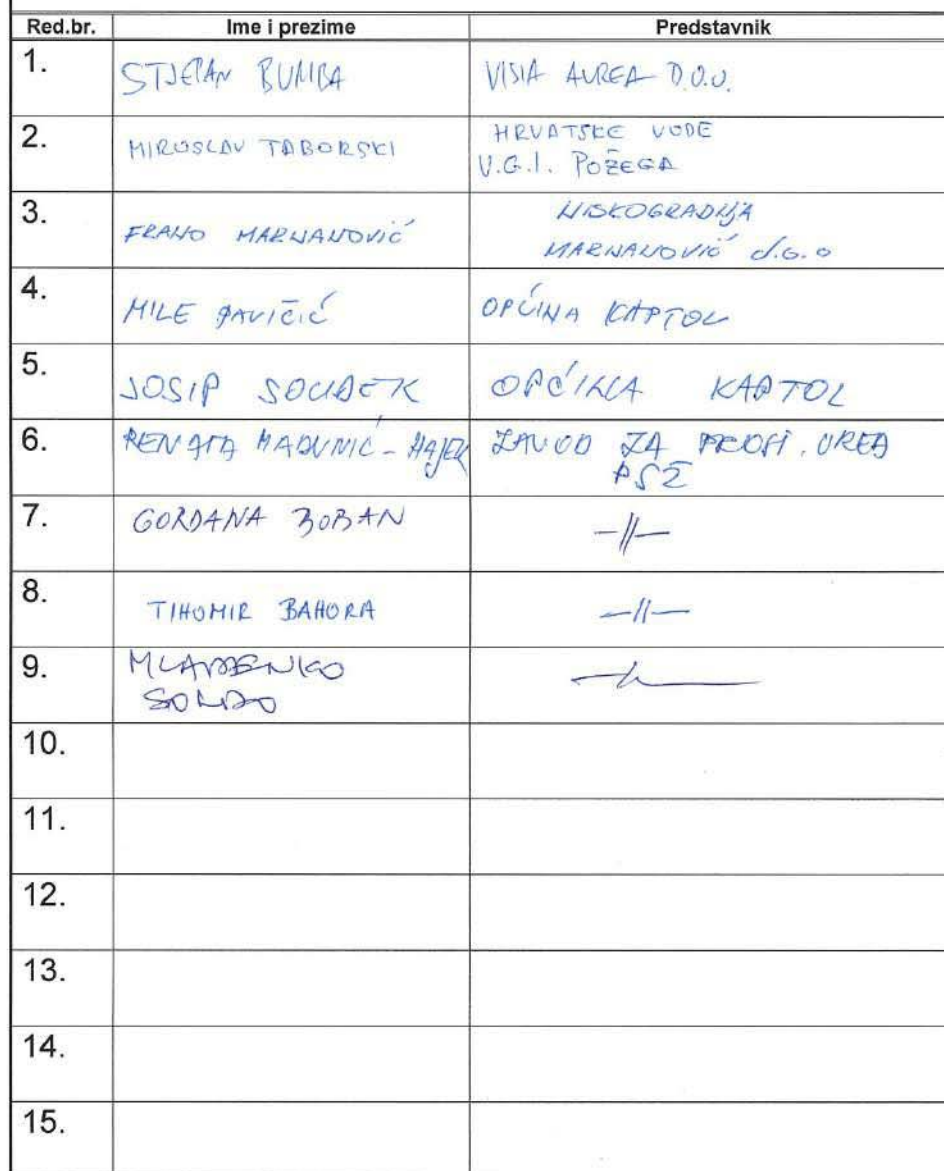 Red.br. Ime i prezime Predstavnik
1. STJEPAN BUMBA VISIA AUREA D.O.O.
2. MIROSLAV TABORSKI HRVATSKE VODE
V.G.I. POŽEGA
3. FRANO MARJANOVIĆ NISKOGRADNJA
MARJANOVIĆ d.o.o
4. MILE PAVIČIĆ OPĆINA KAPTOL
5. JOSIP SOUDEK OPĆINA KAPTOL
6. RENATA MADUNIĆ - HAJEK ZAVOD ZA PROST. UREĐ
PSŽ
7. GORDANA BOBAN -//-
8. TIHOMIR BAHORA -//-
9. MLADENKO
SOLDO -//-
10.
11.
12.
13.
14.
15.